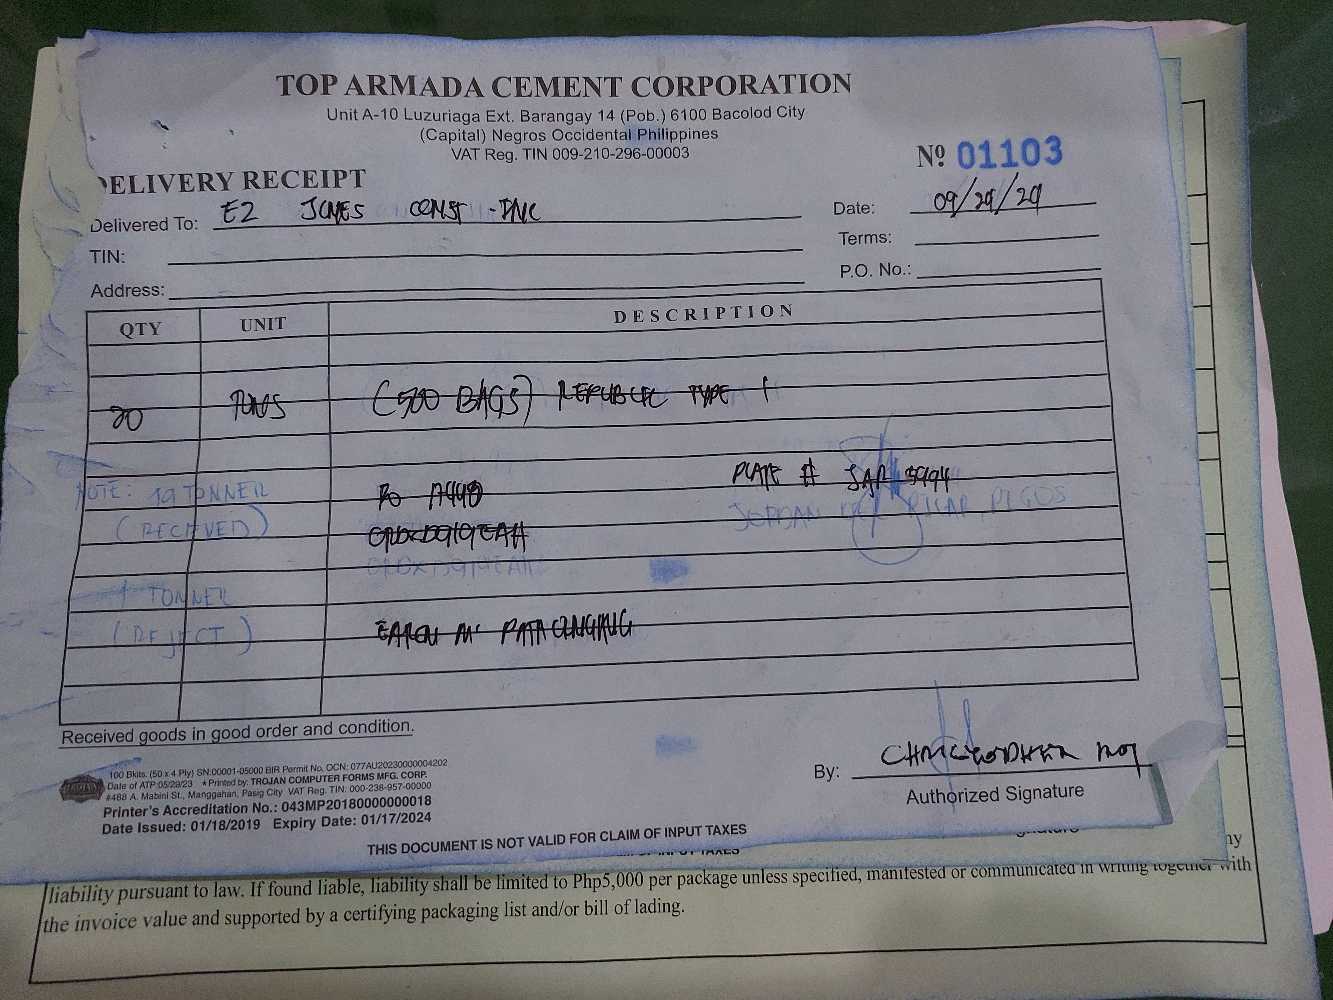 TOP ARMADA CEMENT CORPORATION
Unit A-10 Luzuriaga Ext. Barangay 14 (Pob.) 6100 Bacolod City
(Capital) Negros Occidental Philippines
VAT Reg. TIN 009-210-296-00003
Nº 01103
DELIVERY RECEIPT
Delivered To: EZ JONES CONST - INC
Date: 09/29/24
TIN:
Terms:
Address:
P.O. No.:
QTY UNIT DESCRIPTION
20 TONS (500 BAGS) REPUBLIC TYPE 1
NOTE: 19 TONNER
(RECIEVED)
PLATE #
JORDAN
1 TONNER
(REJECT)
Received goods in good order and condition.
By:
Authorized Signature
100 Bklts. (50 x 4 Ply) SN:00001-05000 BIR Permit No. OCN: 077AU20230000004202
Date of ATP 05/29/23 ★Printed by: TROJAN COMPUTER FORMS MFG. CORP.
#488 A. Mabini St., Manggahan, Pasig City VAT Reg. TIN: 000-238-957-00000
Printer's Accreditation No.: 043MP20180000000018
Date Issued: 01/18/2019 Expiry Date: 01/17/2024
THIS DOCUMENT IS NOT VALID FOR CLAIM OF INPUT TAXES
liability pursuant to law. If found liable, liability shall be limited to Php5,000 per package unless specified, manifested or communicated in writing together with
the invoice value and supported by a certifying packaging list and/or bill of lading.